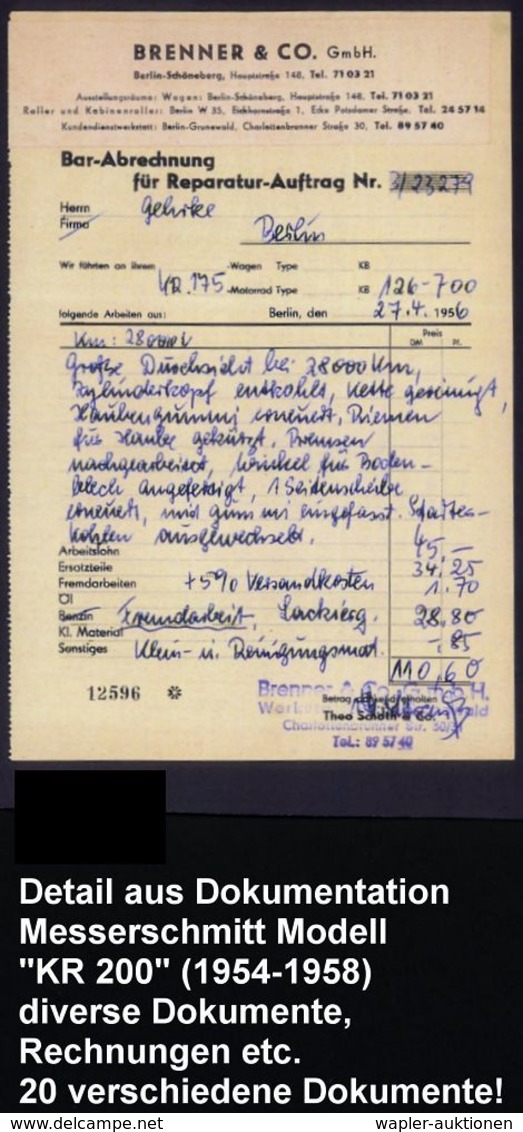 BRENNER & CO. GmbH.
Berlin-Schöneberg, Hauptstraße 148, Tel. 71 03 21
Ausstellungsräume: Wagen: Berlin-Schöneberg, Hauptstraße 148, Tel. 71 03 21
Roller und Kabinenroller: Berlin W 35, Eichhornstraße 1, Ecke Potsdamer Straße, Tel. 24 57 14
Kundendienstwerkstatt: Berlin-Grunewald, Charlottenbrunner Straße 30, Tel. 89 57 40
Bar-Abrechnung
für Reparatur-Auftrag Nr. 3/23279
Herrn Gehrke
Firma
Berlin
Wir führten an Ihrem -Wagen Type KB
KR. 175 -Motorrad Type KB 126-700
folgende Arbeiten aus: Berlin, den 27.4. 1956
Km: 28000 Preis
DM Pf.
Große Durchsicht bei 28000 Km,
Zylinderkopf entkohlt, Kette gereinigt,
Haubengummi erneuert, Riemen
für Haube gekürzt, Bremsen
nachgearbeitet, Winkel für Boden-
blech angefertigt, 1 Seitenscheibe
erneuert, mit gummi eingefasst. Starter-
Kohlen ausgewechselt.
Arbeitslohn 45,-
Ersatzteile 34,25
Fremdarbeiten +5% Versandkosten 1.70
Öl
Benzin Fremdarbeit, Lackierg. 28,80
Kl. Material -,85
Sonstiges Klein- u. Reinigungsmat.
110,60
12596 ✻
Brenner & Co. G.m.b.H.
Betrag dankend erhalten
Theo Scholh & Co.
Charlottenbrunner Str. 30/31
Tel.: 89 57 40
Detail aus Dokumentation
Messerschmitt Modell
"KR 200" (1954-1958)
diverse Dokumente,
Rechnungen etc.
20 verschiedene Dokumente!
www.delcampe.net wapler-auktionen